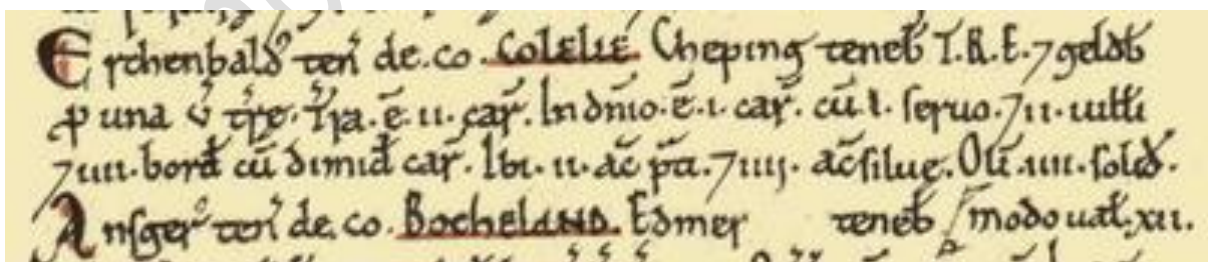 Erchenbald⁹ teñ de.co. COLELIE. Cheping teneb̄ T.R.E. ⁊ geldb̄
ꝑ una v̓ tr̄e. Tr̄a. ē. ii. car̄. In dn̄io. ē. i. car̄. cū. i. seruo. ⁊ ii. uilłi
⁊ iiii. bord̄ cū dimid̄ car̄. Ibi. ii. ac̄ pt̄i. ⁊ iiij. ac̄ silue. Oli̅. iiii. solid̄.
Ansger⁹ teñ de.co. BOCHELAND. Edmer teneb̄ / modo uał. xii.